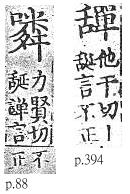 噒
力賢切
誕譂言
不正
p.88
𦧴
他干切丨
誕言不正
p.394